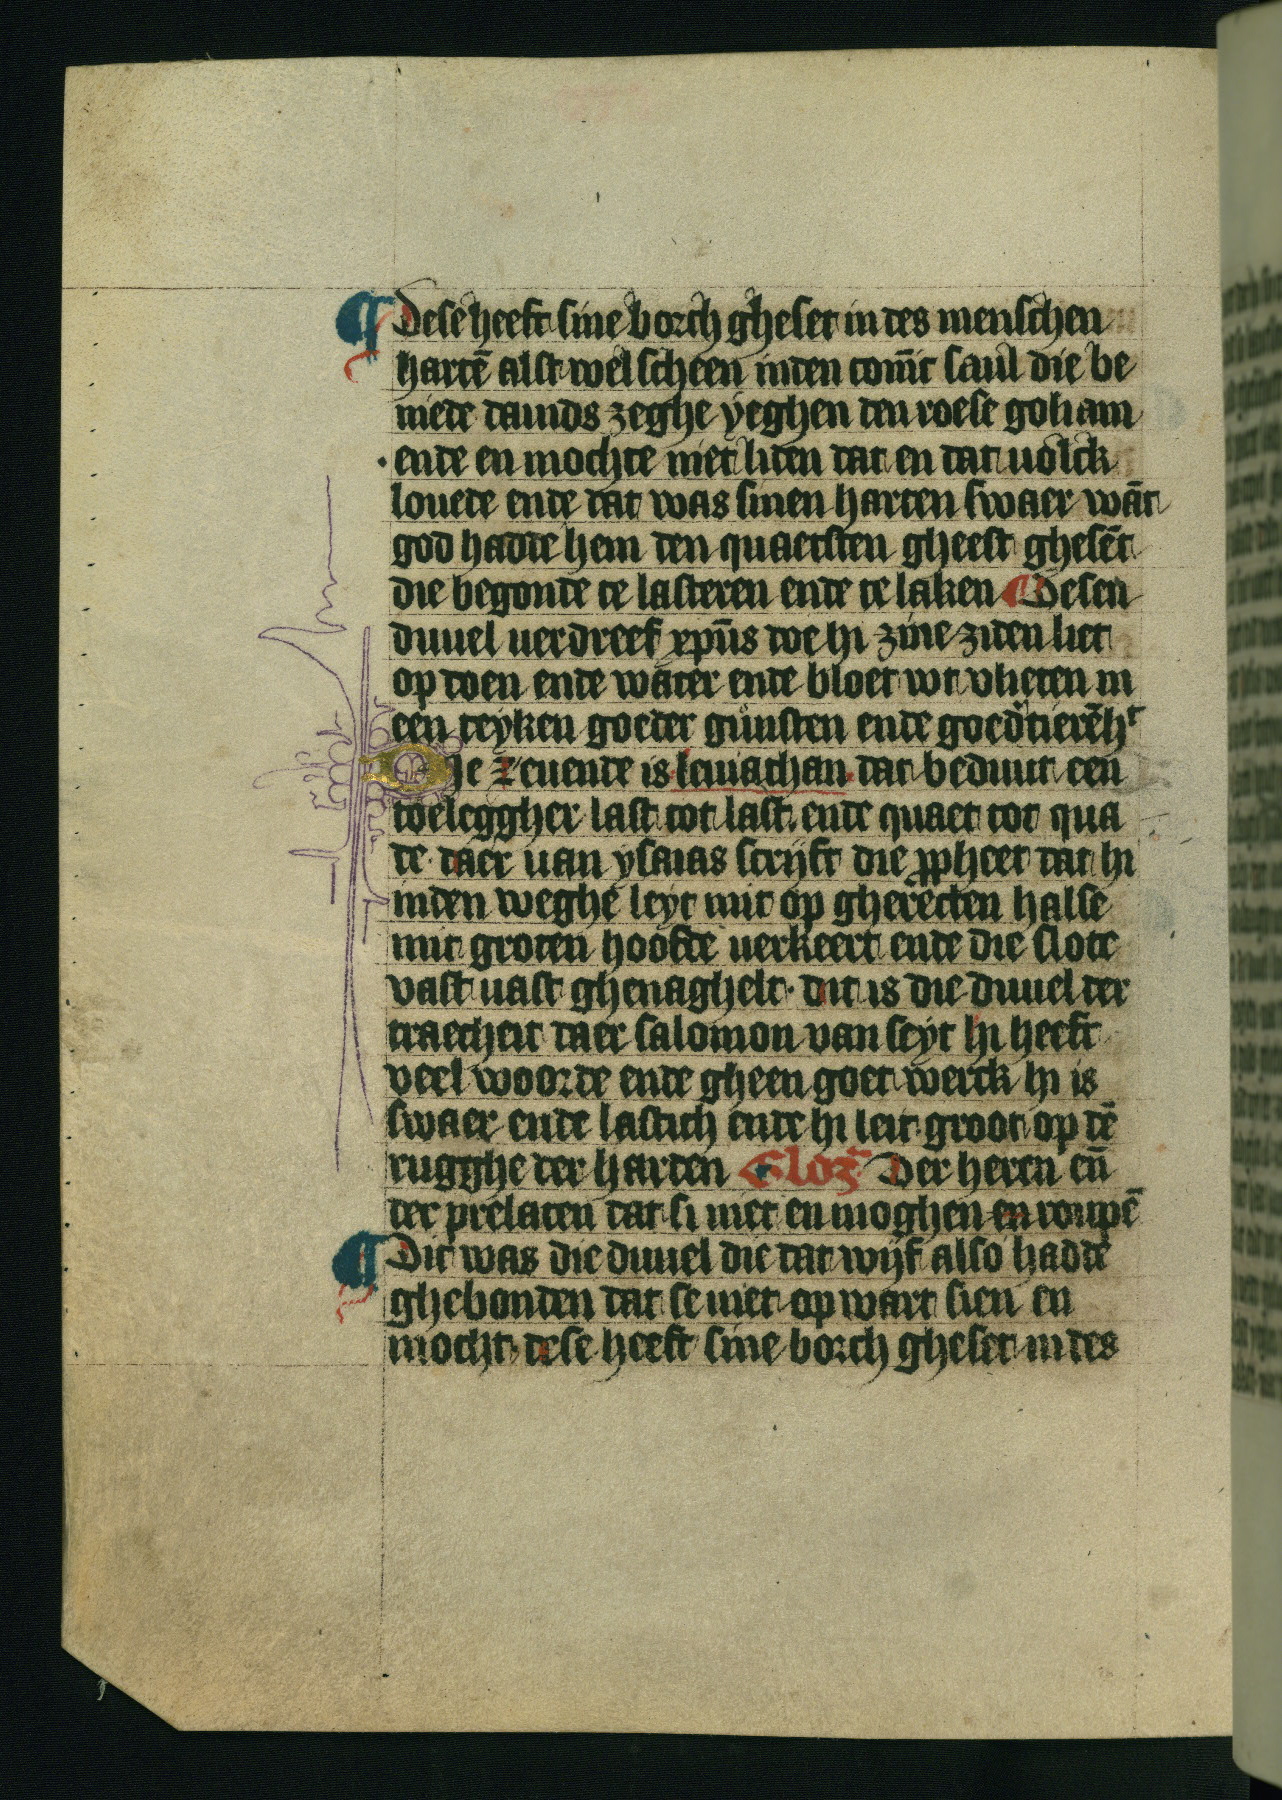 ¶ Dese heeft sine borch gheset in des menschen
hartē alst wel scheen in den conīc saul die be
niede dauids zeghe yeghen den roese goliam
ende en mochte niet liden dat en dat uolck
louede ende dat was sinen harten swaer wāt
god hadde hem den quaetsten gheest ghesēt
die begonde te lasteren ende te laken ¶ Desen
duuel uerdreef xpūs doe hi zine ziden liet
op doen ende water ende bloet wt vlieten in
een teyken goeder gunsten ende goedtierēht
Die zeuende is leuiathan dat beduut een
toeleggher last tot last. ende quaet tot qua
de. daer uan ysaias scrijft die ꝓpheet dat hi
in den weghe leyt mit op gherecten halse
mit groten hoofde uerkeert ende die slote
vast uast ghenaghelt. dit is die duuel der
traecheit daer salomon van seyt hi heeft
veel woorde ende gheen goet werck hi is
swaer ende lastich ende hi leit groot op dē
rugghe der harten Gloz Der heren eñ
der prelaten dat si niet en moghen en roupē
¶ Dit was die duuel die dat wijf also hadde
ghebonden dat se niet opwart sien en
mocht. dese heeft sine borch gheset in des